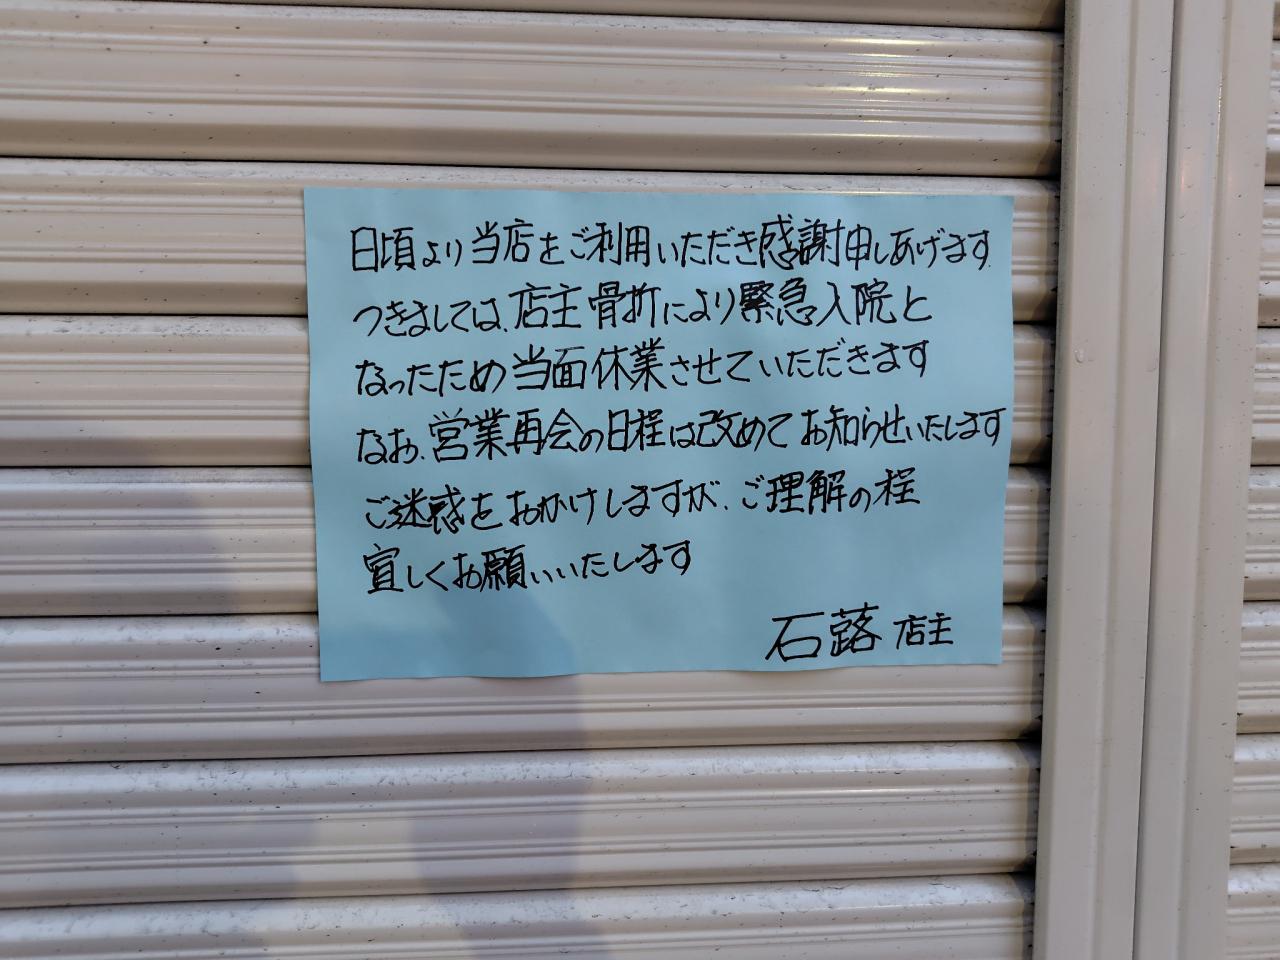 日頃より当店をご利用いただき感謝申しあげます
つきましては、店主骨折により緊急入院と
なったため当面休業させていただきます
なお、営業再会の日程は改めてお知らせいたします
ご迷惑をおかけしますが、ご理解の程
宜しくお願いいたします
石蕗 店主